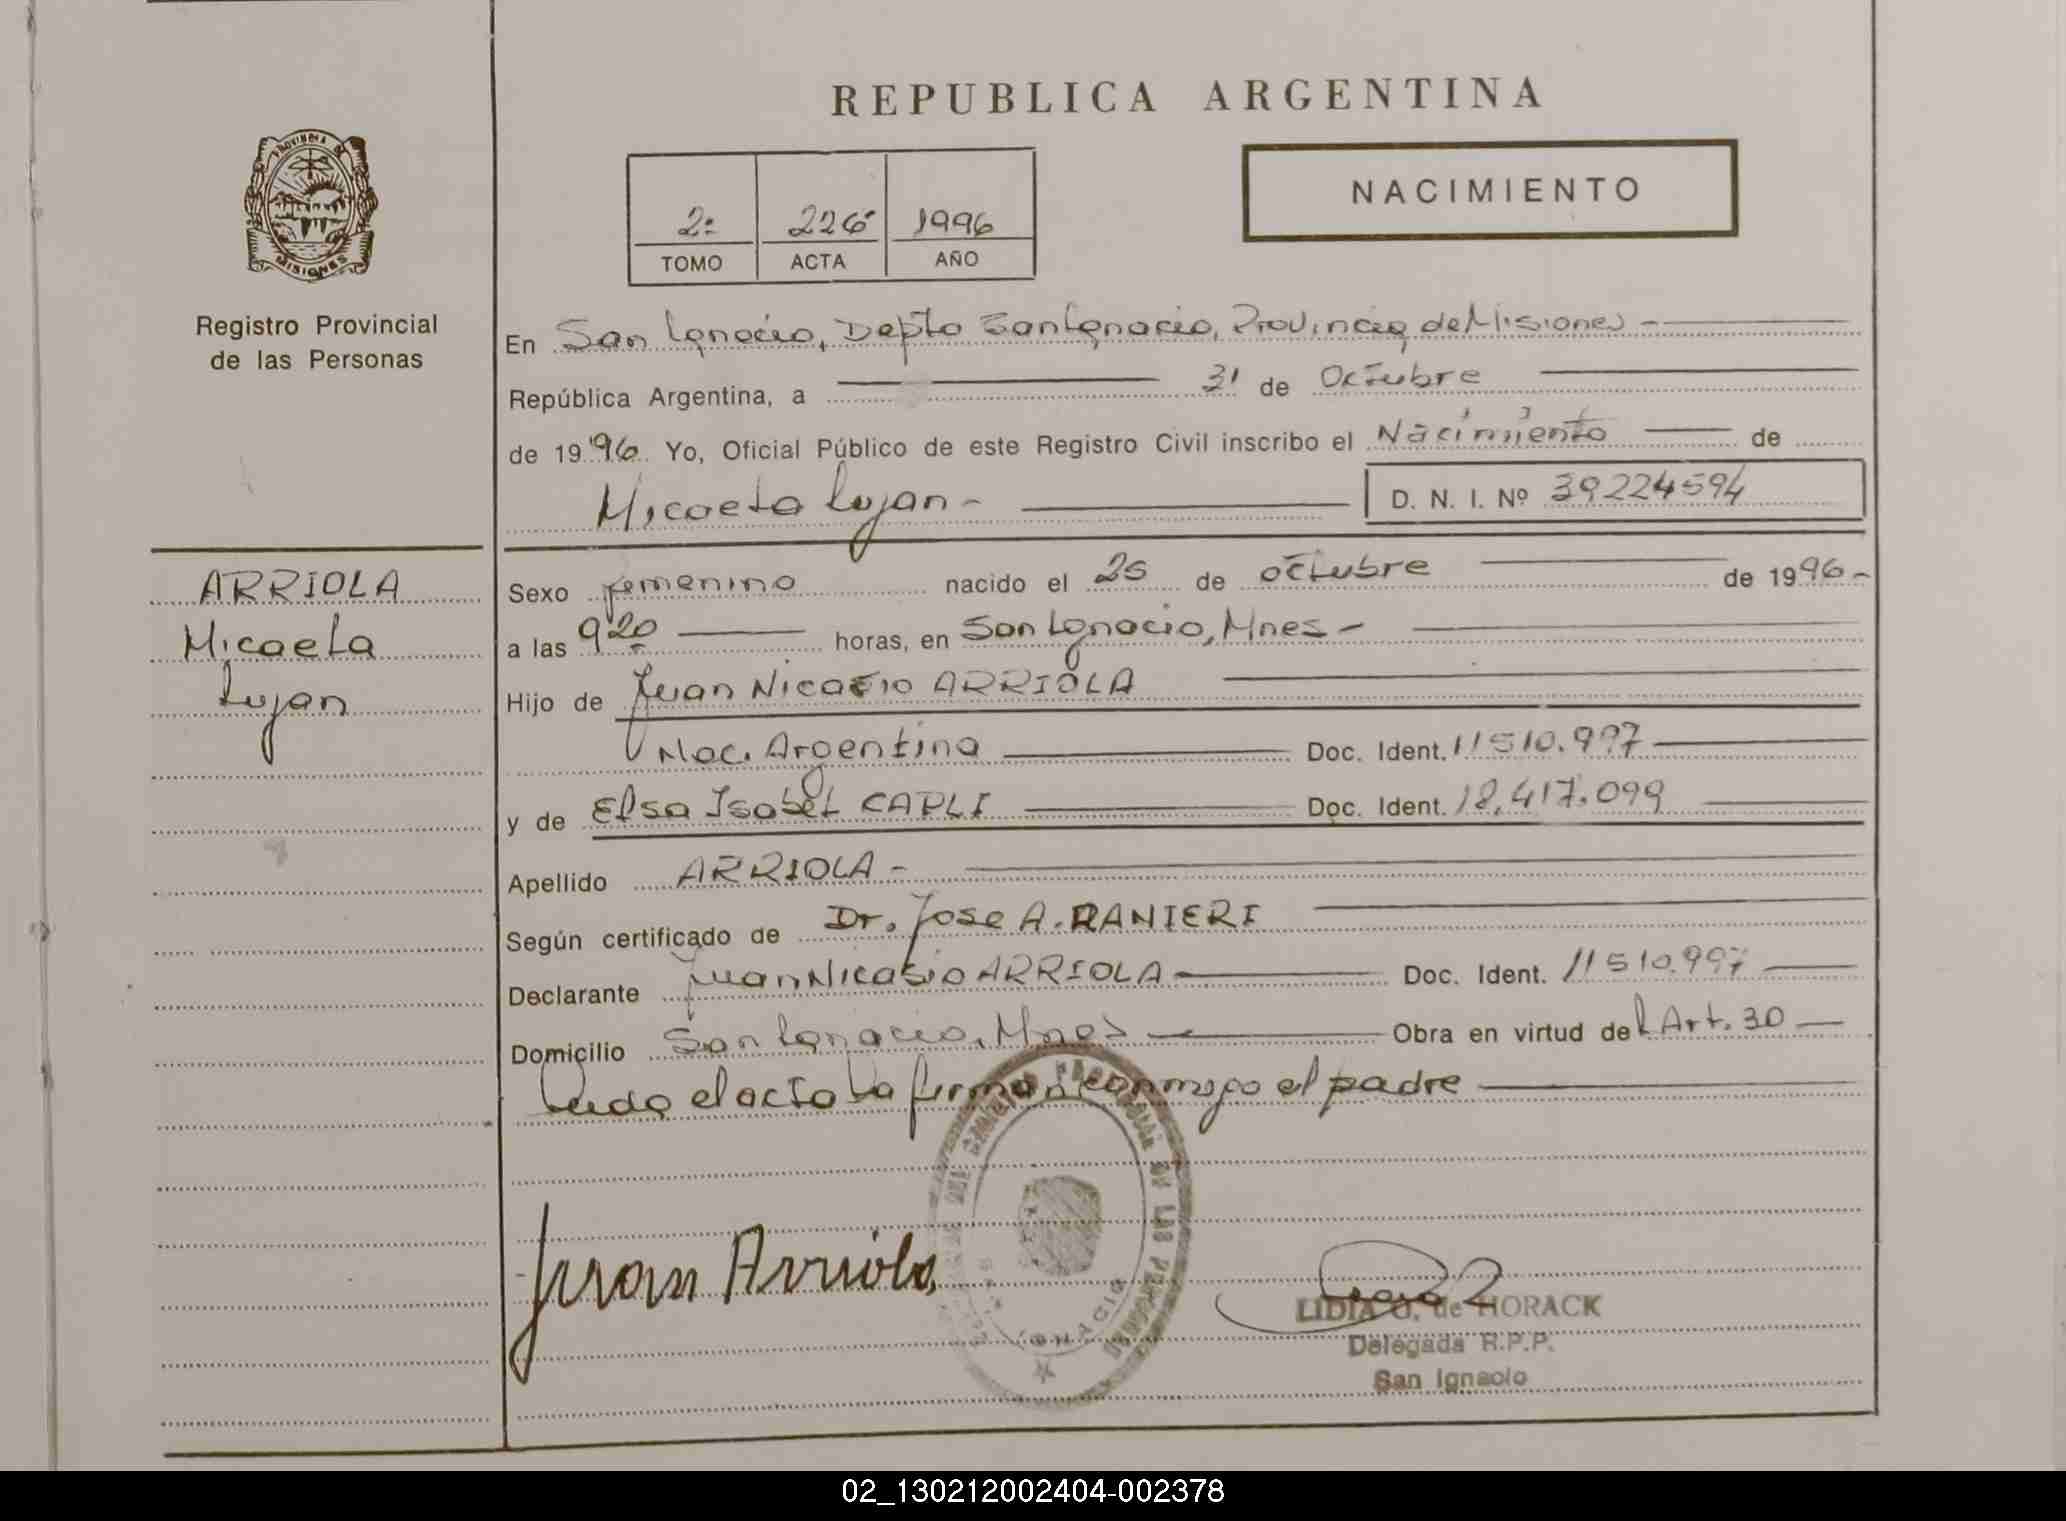 REPUBLICA ARGENTINA
PROVINCIA DE
MISIONES
Registro Provincial
de las Personas
NACIMIENTO
2º 226 1996
TOMO ACTA AÑO
En San Ignacio, Depto San Ignacio, Provincia de Misiones -
República Argentina, a 31 de Octubre
de 1996 Yo, Oficial Público de este Registro Civil inscribo el Nacimiento de
Micaela Lujan - D. N. I. Nº 39224594
ARRIOLA
Micaela
Lujan
Sexo femenino nacido el 25 de octubre de 1996 -
a las 9 20 horas, en San Ignacio, Mnes -
Hijo de Juan Nicasio ARRIOLA
Nac. Argentina Doc. Ident. 11510.997
y de Elsa Isabel Doc. Ident. 18.417.099
Apellido ARRIOLA -
Según certificado de Dr. Jose A. RANIERI
Declarante Juan Nicasio ARRIOLA Doc. Ident. 11510.997
Domicilio San Ignacio, Mnes Obra en virtud del Art. 30
Leida el acta la firman conmigo el padre
Juan Arriola
DE LAS PERSONAS
LIDIA G. de HORACK
Delegada R.P.P.
San Ignacio
02_130212002404-002378